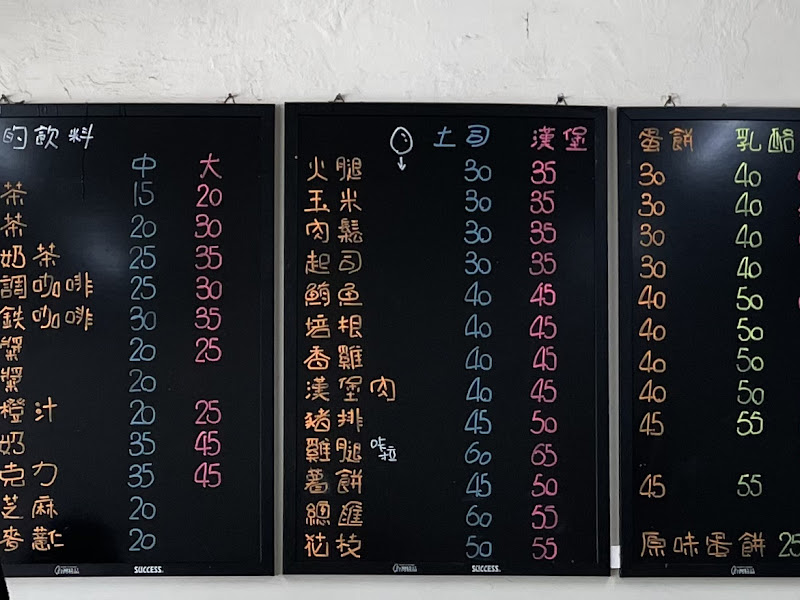 的飲料
中 大
茶 15 20
茶 20 30
奶茶 25 35
調咖啡 25 30
鉄咖啡 30 35
漿 20 25
漿 20
橙汁 20 25
奶 35 45
克力 35 45
芝麻 20
麥薏仁 20
SUCCESS.
土司 漢堡
火腿 30 35
玉米 30 35
肉鬆 30 35
起司 30 35
鮪魚 40 45
培根 40 45
香雞 40 45
漢堡肉 40 45
豬排 45 50
雞腿 咔啦 60 65
薯餅 45 50
總匯 60 55
花枝 50 55
SUCCESS.
蛋餅 乳酪
30 40
30 40
30 40
30 40
40 50
40 50
40 50
40 50
45 55
45 55
原味蛋餅 25